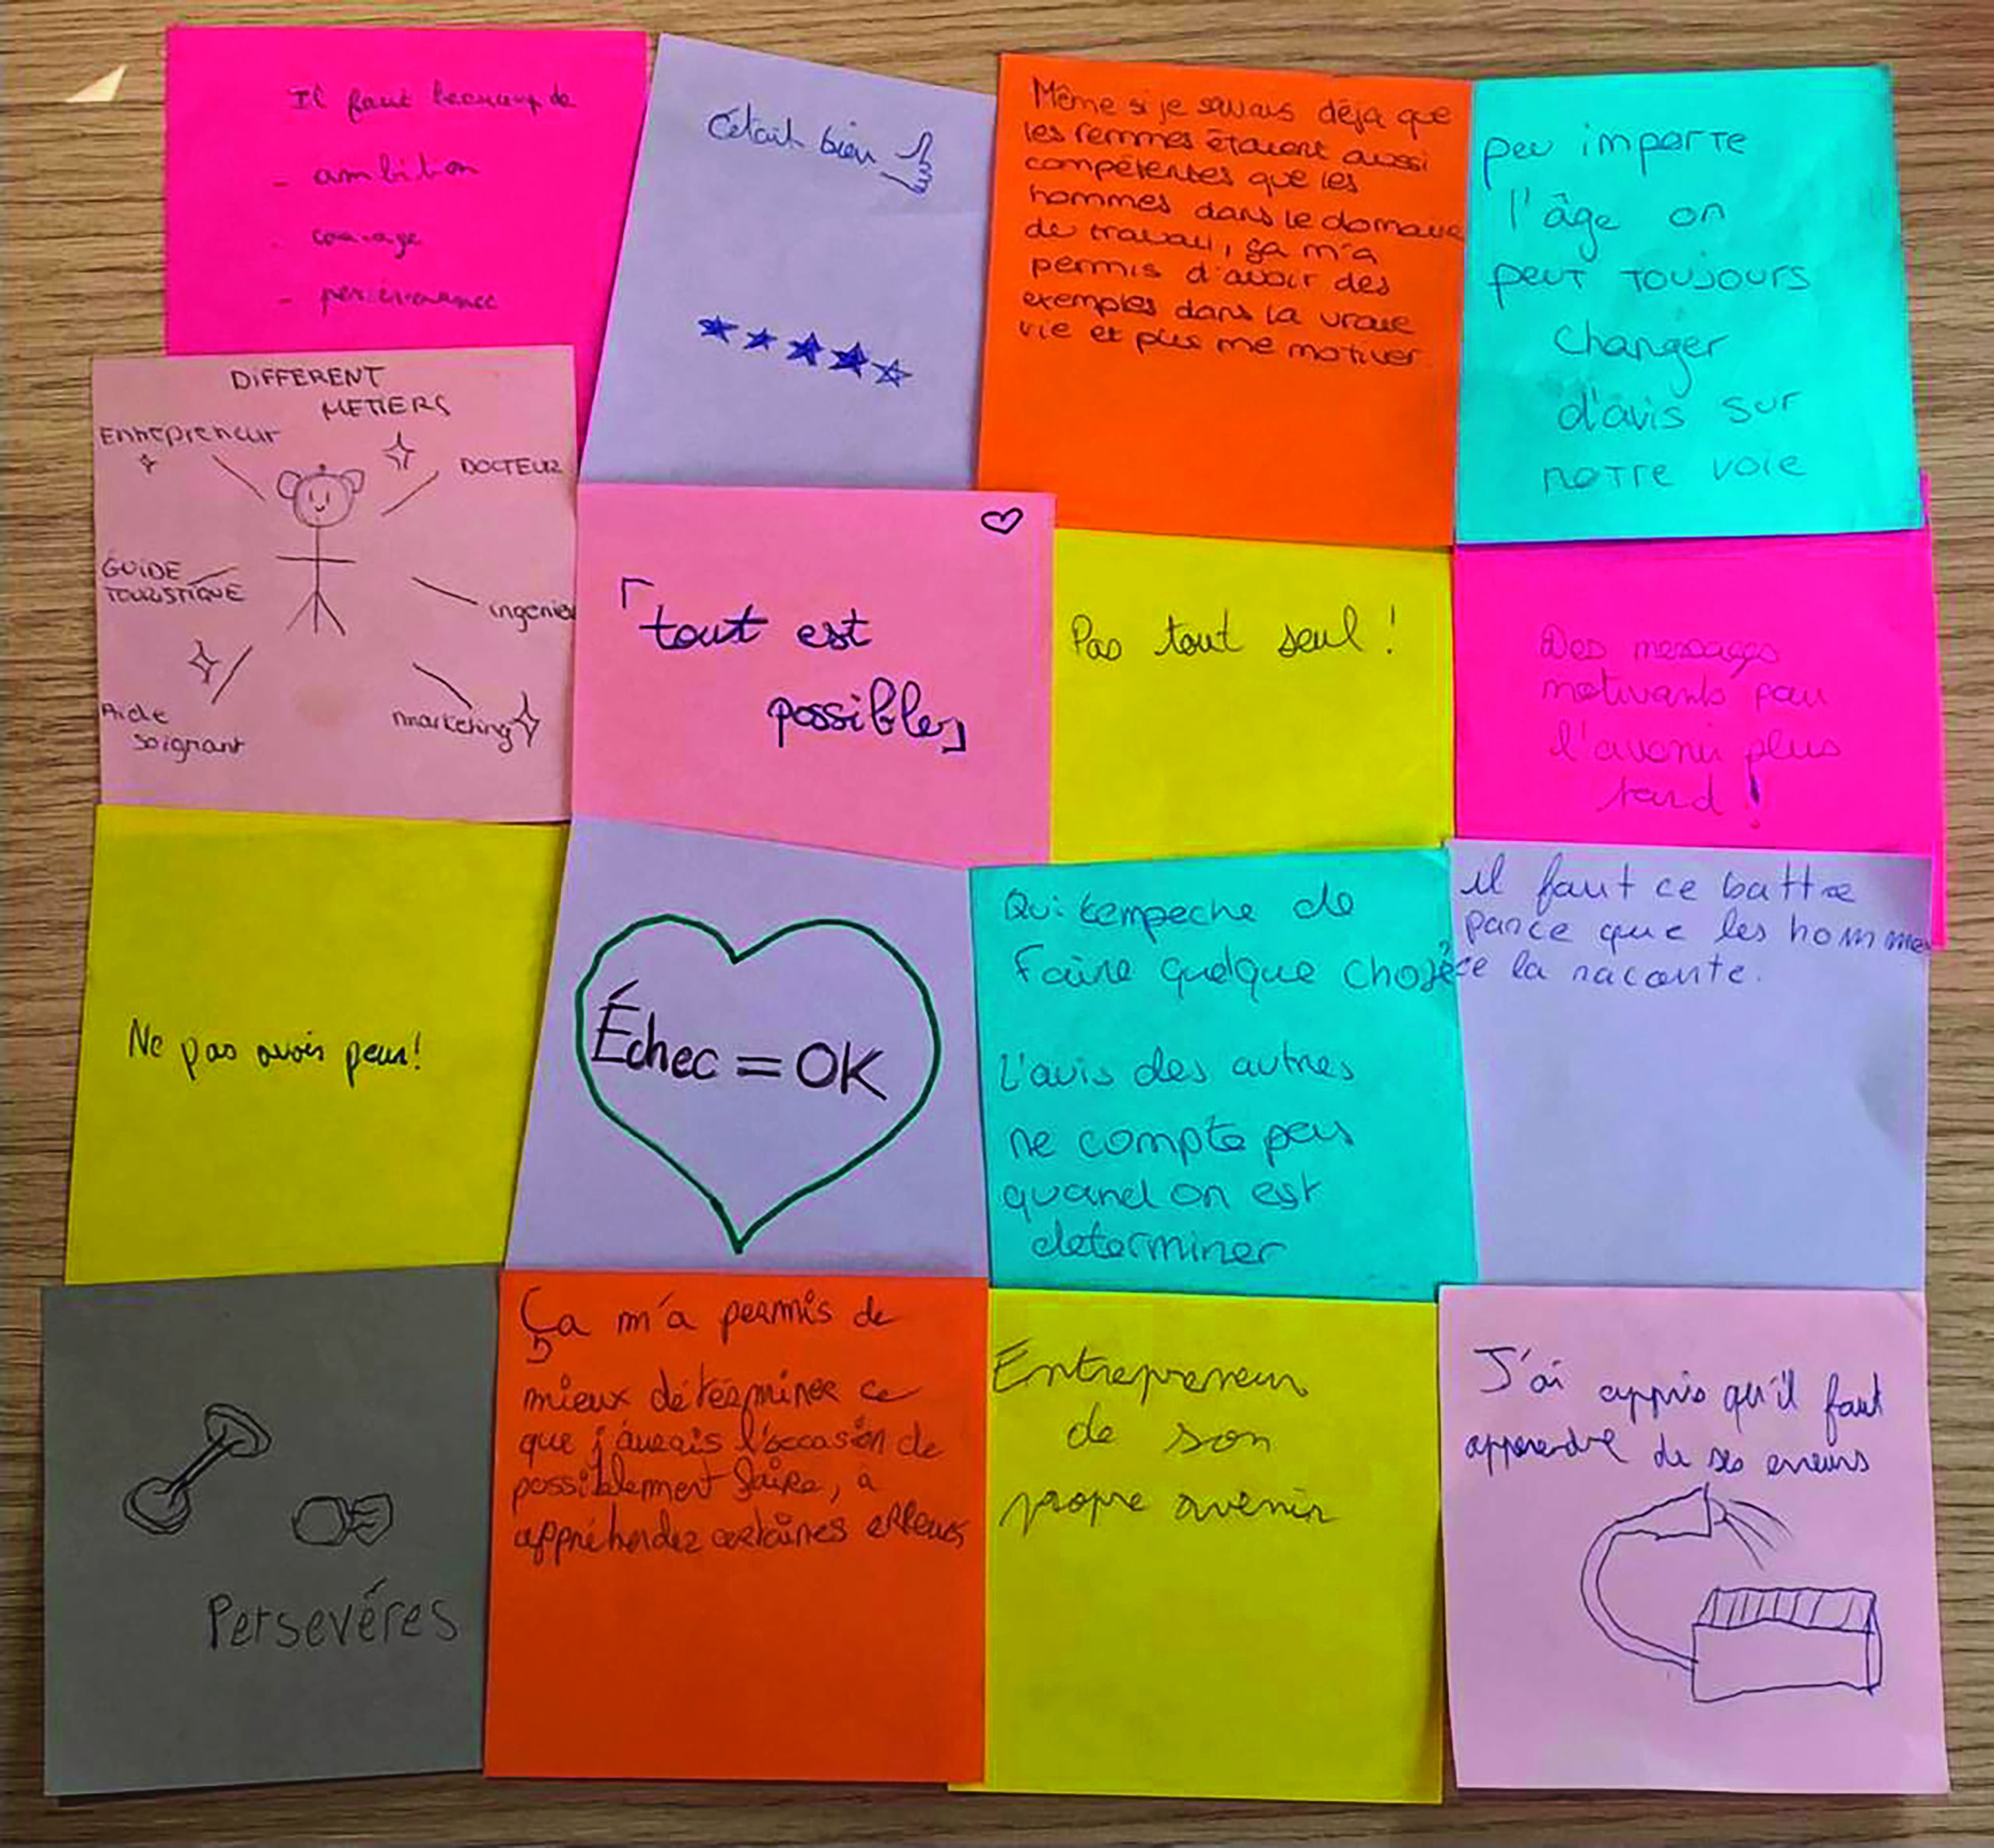 Il faut beaucoup de
- ambition
- courage
- perséverance
C'était bien
Même si je savais déja que
les femmes étaient aussi
compétentes que les
hommes dans le domaine
de travail, ça m'a
permis d'avoir des
exemples dans la vraie
vie et plus me motiver
peu importe
l'âge on
peut toujours
changer
d'avis sur
notre voie
DIFFERENT
METIERS
Entrepreneur
DOCTEUR
GUIDE
TOURISTIQUE
ingenieu
Aide
soignant
marketing
「tout est
possible」
Pas tout seul !
Des messages
motivants pour
l'avenir plus
tard !
Ne pas avoir peur!
Échec = OK
Qui tempeche de
faire quelque chose
L'avis des autres
ne compte pas
quand on est
determiner
il faut ce battre
parce que les hommes
ce la raconte.
Persevéres
Ça m'a permis de
mieux déterminer ce
que j'aurais l'occasion de
possiblement faire, à
appréhender certaines erreurs
Entrepreneur
de son
propre avenir
J'ai appris qu'il faut
apprendre de ses erreurs